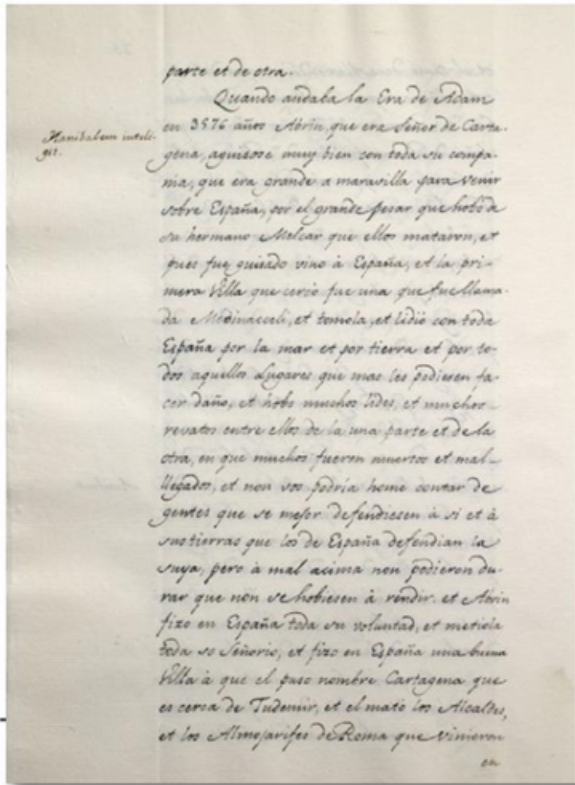 parte et de otra.
Quando andaba la Era de Adam
en 3576 años Abrin, que era Señor de Carta-
gena, aguisose muy bien con toda su compa-
nia, que era grande a maravilla para venir
sobre España, por el grande pesar que hobo da
su hermano Melcar que ellos mataron, et
pues fue guisado vino à España, et la pri-
mera Villa que cercò fue una que fue llama-
da Medinaceli, et tomola, et lidiò con toda
España por la mar et por tierra et por to-
dos aquellos Lugares que mas les podieron fa-
cer daño, et hobo muchos lides, et muchos
revatos entre ellos de la una parte et de la
otra, en que muchos fueron muertos et mal-
llegados, et non vos podria home contar de
gentes que se mejor defendiesen à si et à
sus tierras que los de España defendian la
suya, pero à mal acima non podieron du-
rar que non se hobiesen à rendir. et Abrin
fizo en España toda su voluntad, et metiola
toda so Señorio, et fizo en España una buena
Villa à que el puso nombre Cartagena que
es cerca de Tudemir, et el matò los Alcaldes,
et los Almojarifes de Roma que vinieron
en
Hanibalem inteli-
git.